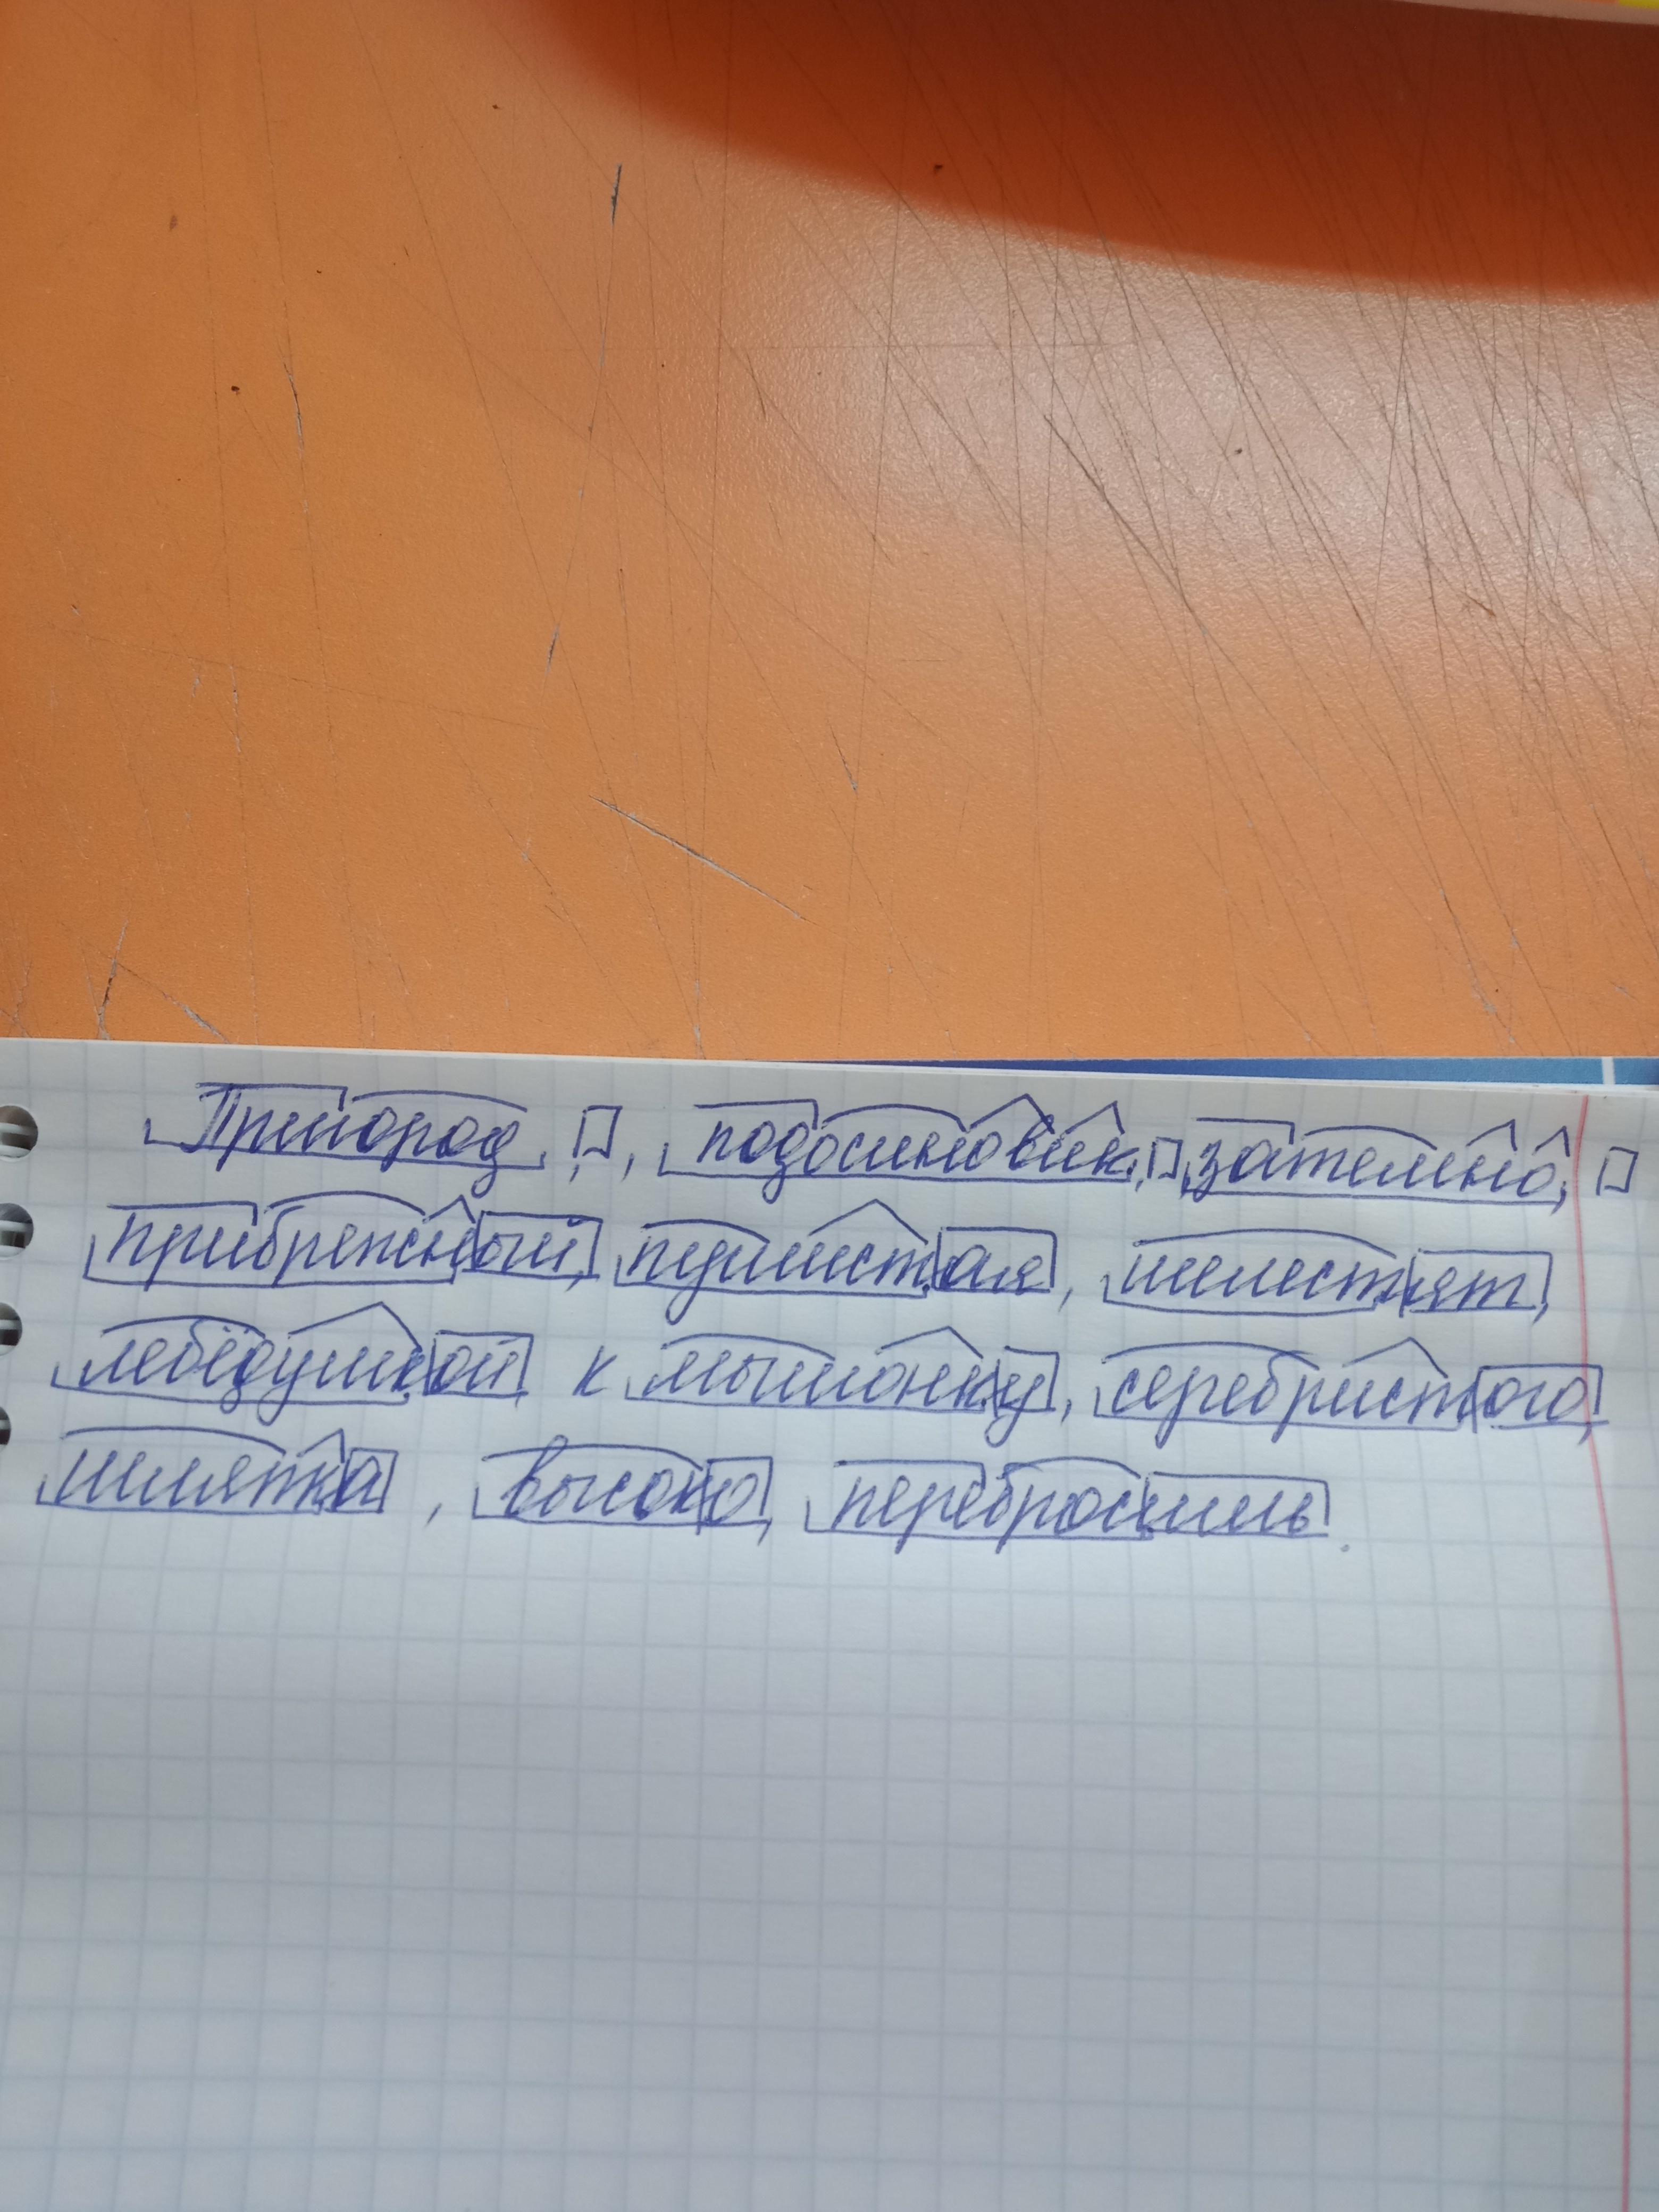 Пригород, подосиновик, затемно,
прибрежный, пушистая, шелестят,
лебёдушкой к мышонку, серебристого,
шилятка, высоко, перебросишь.